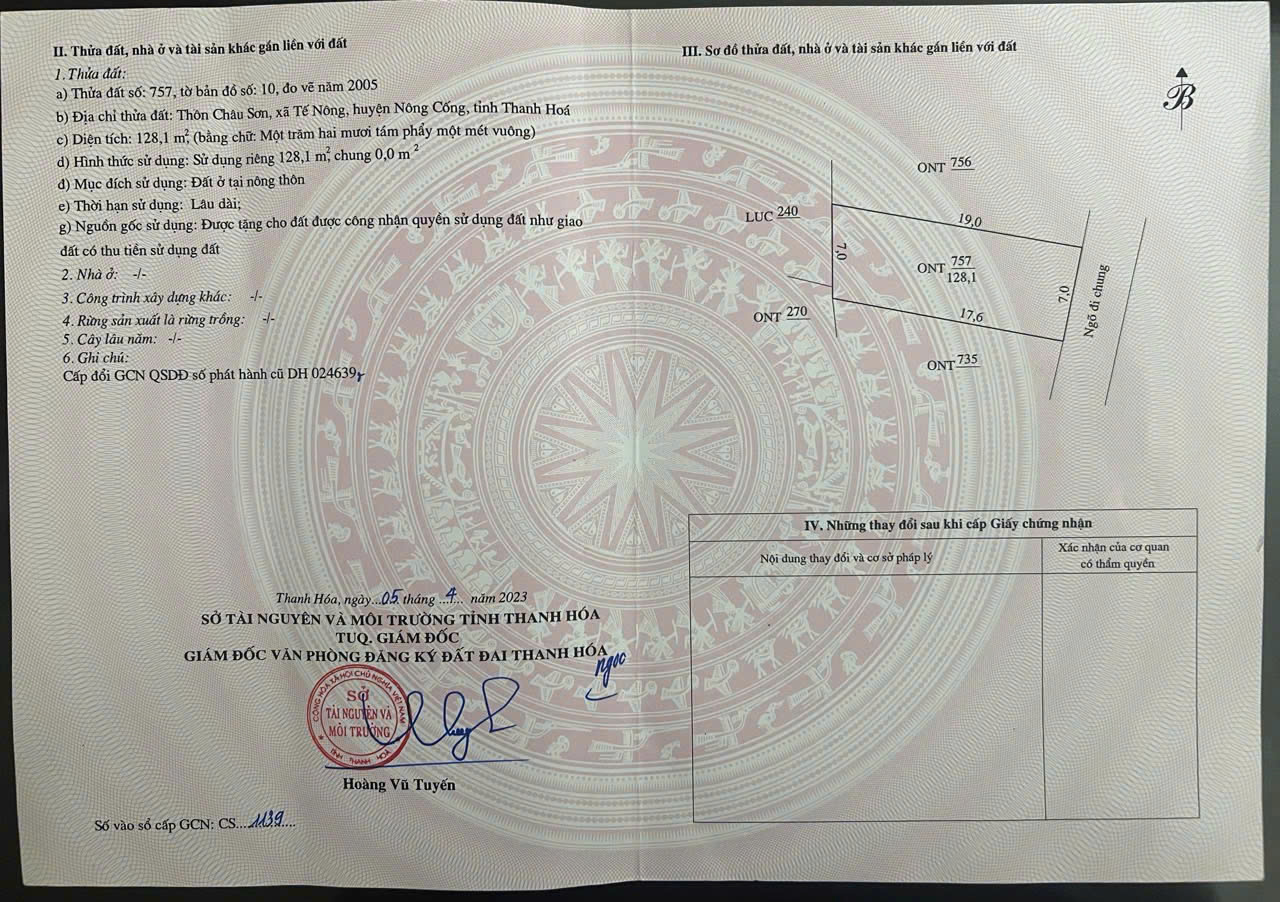 II. Thửa đất, nhà ở và tài sản khác gắn liền với đất
1. Thửa đất:
a) Thửa đất số: 757, tờ bản đồ số: 10, đo vẽ năm 2005
b) Địa chỉ thửa đất: Thôn Châu Sơn, xã Tế Nông, huyện Nông Cống, tỉnh Thanh Hoá
c) Diện tích: 128,1 m², (bằng chữ: Một trăm hai mươi tám phẩy một mét vuông)
d) Hình thức sử dụng: Sử dụng riêng 128,1 m², chung 0,0 m²
đ) Mục đích sử dụng: Đất ở tại nông thôn
e) Thời hạn sử dụng: Lâu dài;
g) Nguồn gốc sử dụng: Được tặng cho đất được công nhận quyền sử dụng đất như giao
đất có thu tiền sử dụng đất
2. Nhà ở: -/-
3. Công trình xây dựng khác: -/-
4. Rừng sản xuất là rừng trồng: -/-
5. Cây lâu năm: -/-
6. Ghi chú:
Cấp đổi GCN QSDĐ số phát hành cũ DH 024639
Thanh Hóa, ngày...05. tháng ..4... năm 2023
SỞ TÀI NGUYÊN VÀ MÔI TRƯỜNG TỈNH THANH HÓA
TUQ. GIÁM ĐỐC
GIÁM ĐỐC VĂN PHÒNG ĐĂNG KÝ ĐẤT ĐAI THANH HÓA
ngọc
CỘNG HÒA XÃ HỘI CHỦ NGHĨA VIỆT NAM
SỞ
TÀI NGUYÊN VÀ
MÔI TRƯỜNG
TỈNH THANH HOÁ
Hoàng Vũ Tuyến
Số vào sổ cấp GCN: CS....1139....
III. Sơ đồ thửa đất, nhà ở và tài sản khác gắn liền với đất
B
ONT 756
LUC 240
19,0
7,0
ONT 757
128,1
7,0
Ngõ đi chung
ONT 270
17,6
ONT 735
IV. Những thay đổi sau khi cấp Giấy chứng nhận
Nội dung thay đổi và cơ sở pháp lý
Xác nhận của cơ quan
có thẩm quyền